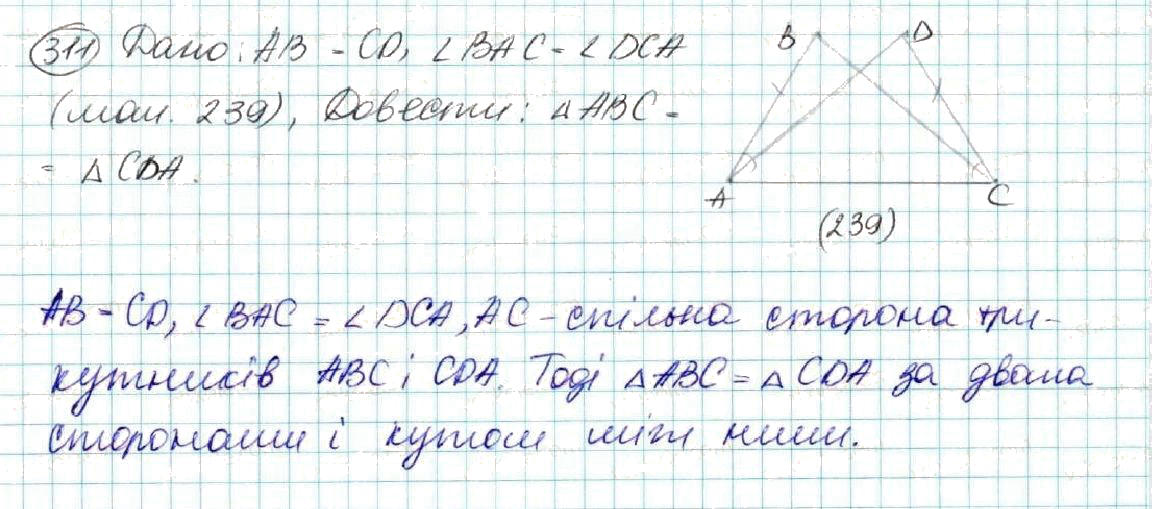 311 Дано: AB = CD, ∠BAC = ∠DCA
(мал. 239), Довести: △ABC =
= △CDA.
B D
A C
(239)
AB = CD, ∠BAC = ∠DCA, AC - спільна сторона три-
кутників ABC і CDA. Тоді △ABC = △CDA за двома
сторонами і кутом між ними.